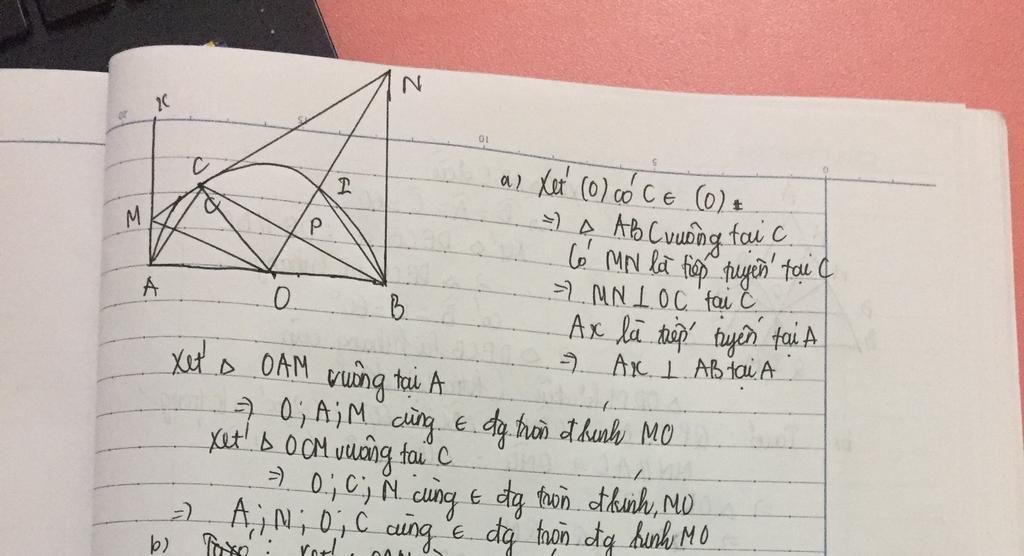 x
N
C
I
M
C
P
A
O
B
a) Xét (O) có C ∈ (O)
=> Δ ABC vuông tại C
Có MN là tiếp tuyến tại C
=> MN ⊥ OC tại C
Ax là tiếp tuyến tại A
=> Ax ⊥ AB tại A
Xét Δ OAM vuông tại A
=> O; A; M cùng ∈ đg tròn đkính MO
Xét Δ OCM vuông tại C
=> O; C; M cùng ∈ đg tròn đkính MO
=> A; M; O; C cùng ∈ đg tròn đg kính MO
b)